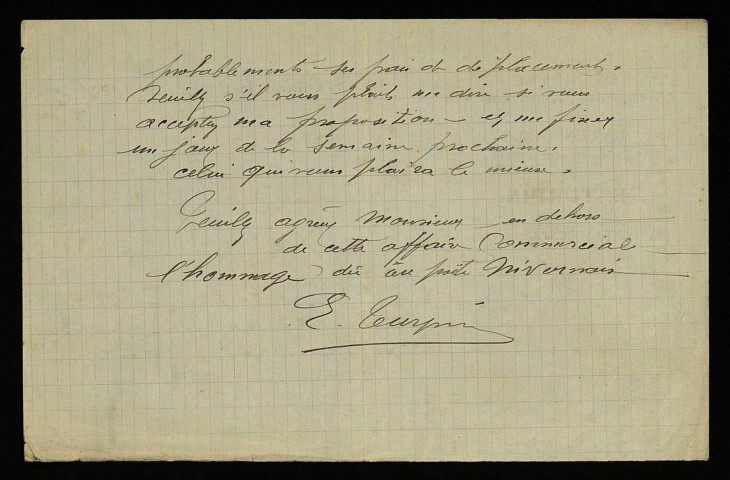 probablements ses frais de déplacements.
Veuillez s'il vous plaits me dire si vous
acceptez ma proposition - et me fixez
un jour de la semaine prochaine.
celui qui vous plaira le mieux.
Veuillez agréez Monsieur en dehors
de cette affaire Commercial
l'hommage dû au poète Nivernais
E. Turpin